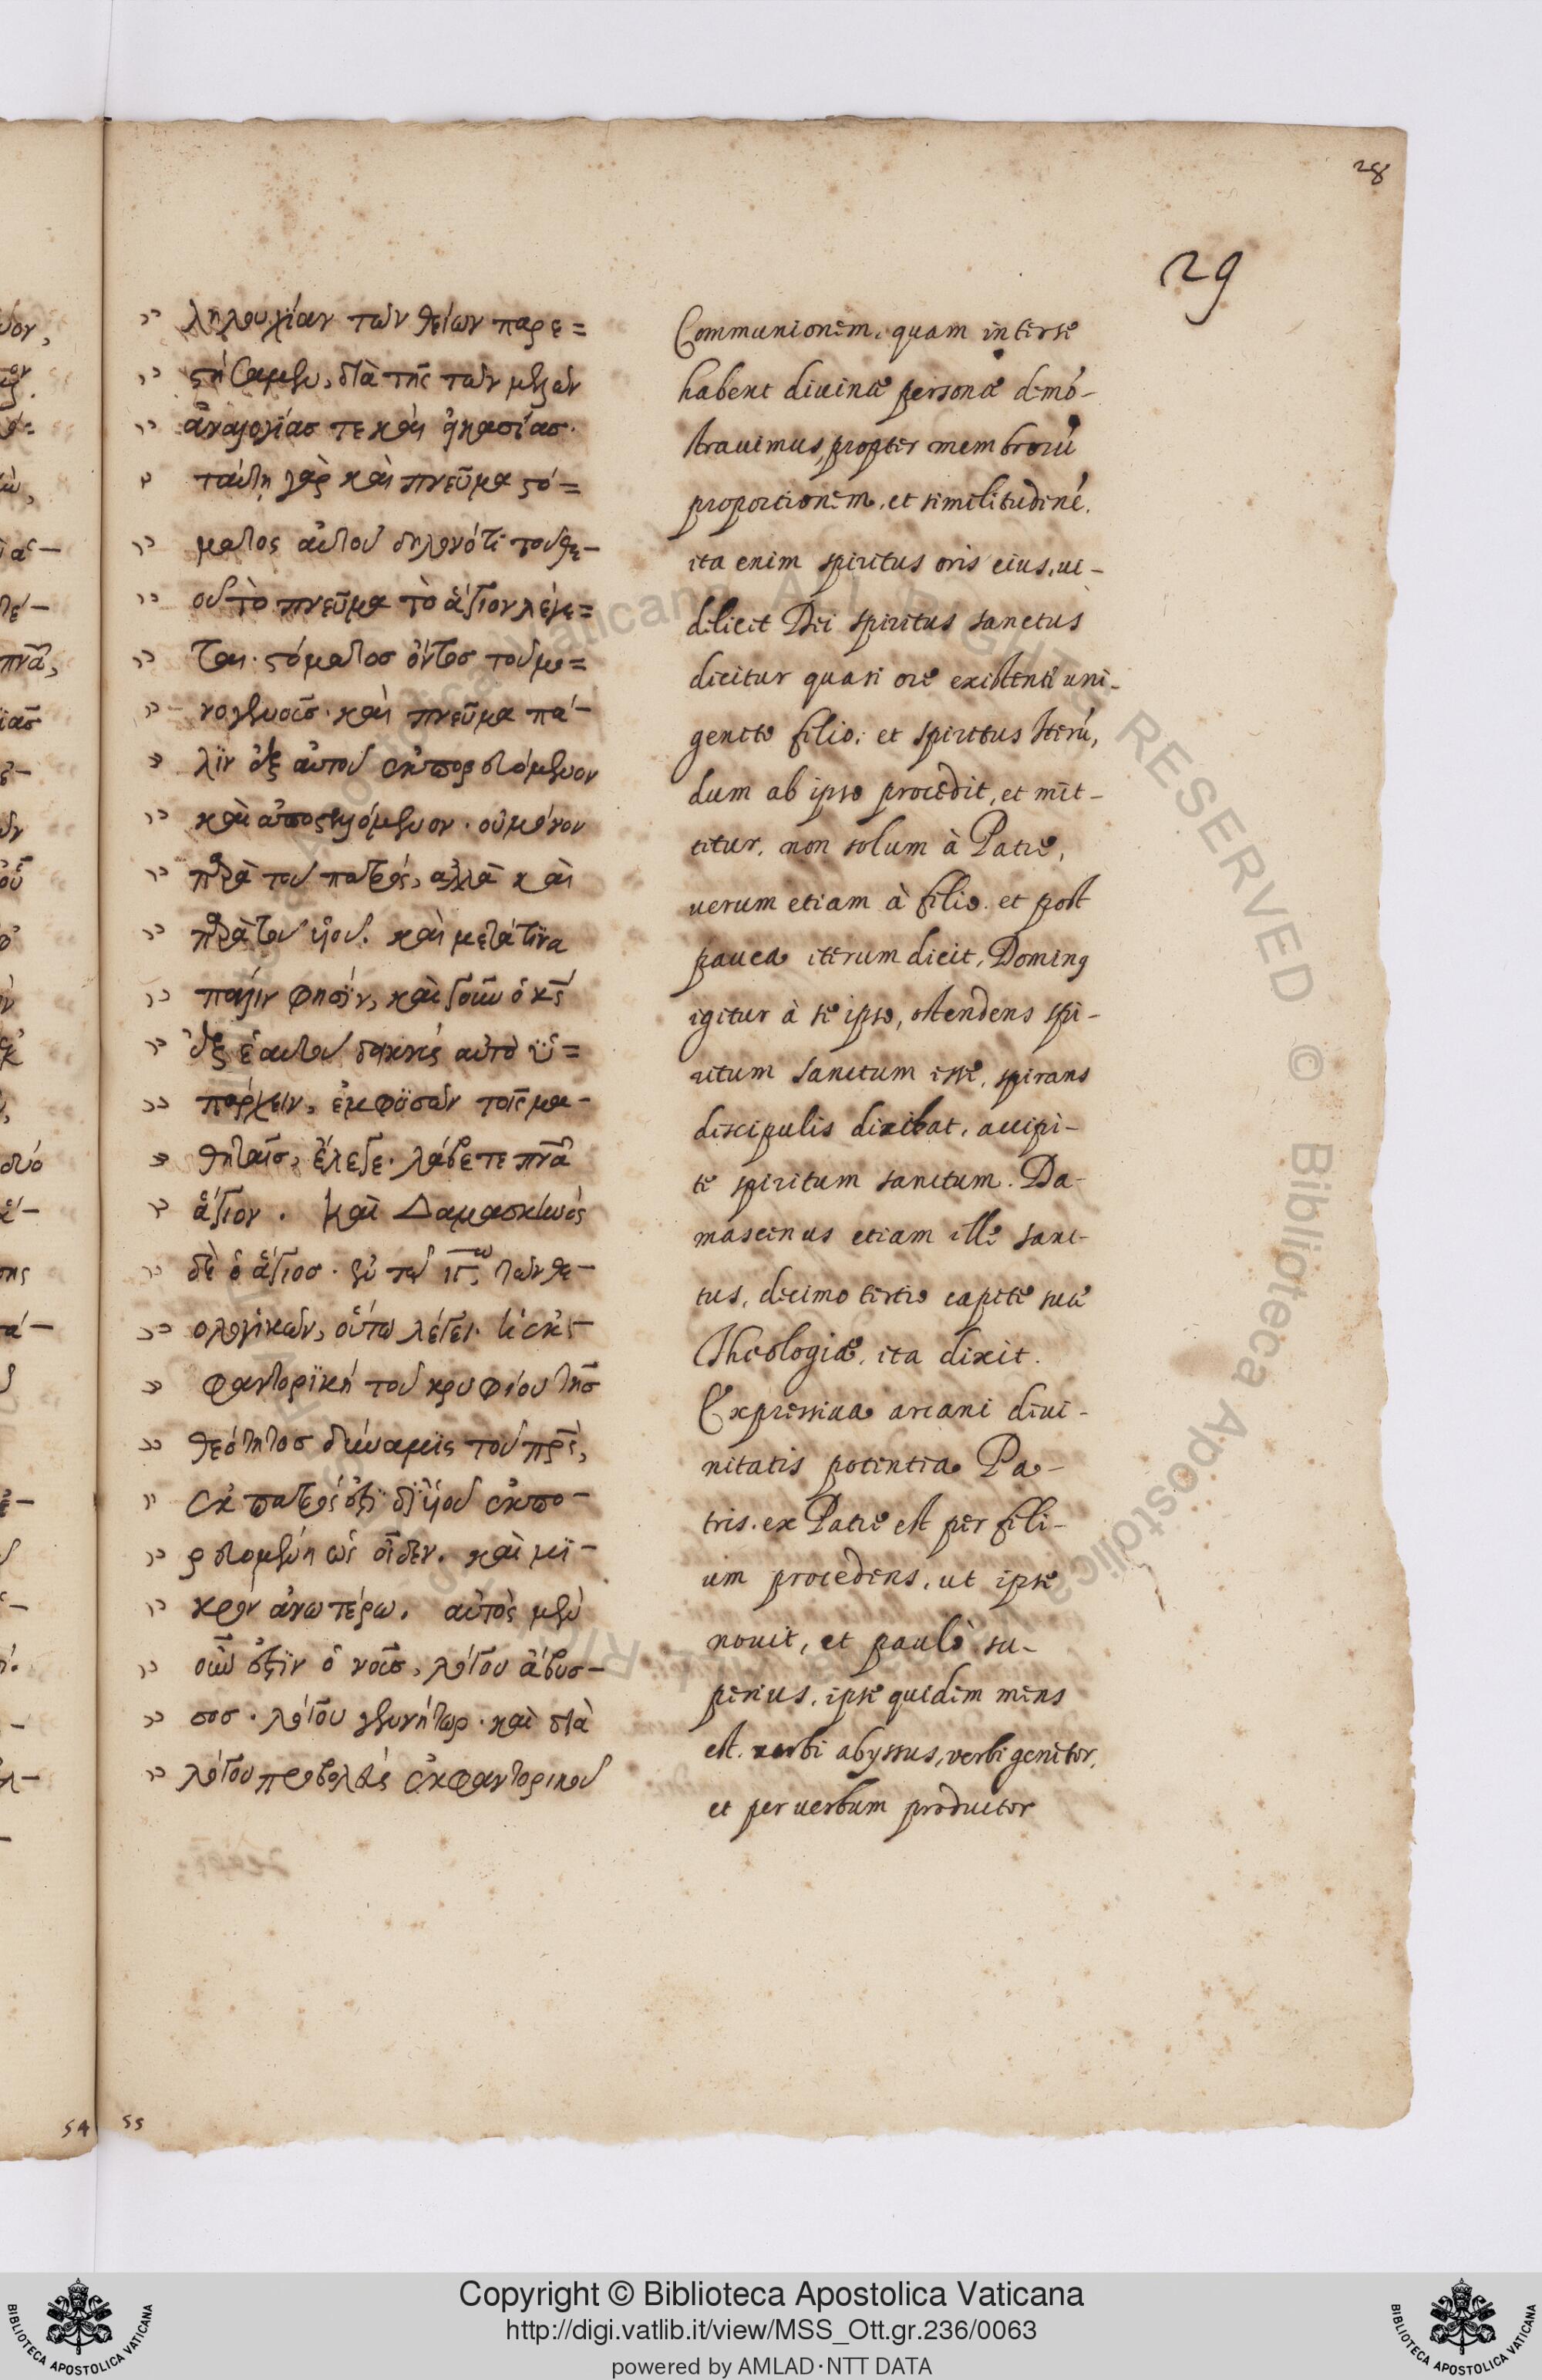 28
29
λληλουχίαν τῶν θείων παρε=
στήσαμεν, διὰ τῆς τῶν μελῶν
ἀναλογίας τε καὶ εἰκασίας.
ταύτῃ γὰρ καὶ πνεῦμα στό=
ματος αὐτοῦ δηλονότι τοῦ θε-
οῦ τὸ πνεῦμα τὸ ἅγιον λέγε=
ται. στόματος ὄντος τοῦ μο=
νογενοῦς. καὶ πνεῦμα πά-
λιν ἐξ αὐτοῦ ἐκπορευόμενον
καὶ ἀποστελλόμενον. οὐ μόνον
παρὰ τοῦ πατρός, ἀλλὰ καὶ
παρὰ τοῦ υἱοῦ. καὶ μετά τινα
πάλιν φησίν, καὶ γοῦν ὁ κς̄
ἐξ ἑαυτοῦ δεικνὺς αὐτὸ ὑ=
πάρχειν, ἐμφυσῶν τοῖς μα-
θηταῖς, ἔλεγε. λάβετε πνᾶ
ἅγιον. καὶ Δαμασκηνὸς
δὲ ὁ ἅγιος. ἐν τῷ ιγω τῶν θε-
ολογικῶν, οὕτω λέγει. ἡ ἐκ-
φαντορικὴ τοῦ κρυφίου τῆς
θεότητος δύναμις τοῦ πρς̄,
ἐκ πατρός ἐστι δι' υἱοῦ ἐκπο-
ρευομένη ὡς οἶδεν. καὶ μι-
κρὸν ἀνωτέρω. αὐτὸς μὲν
οὖν ἐστὶν ὁ νοῦς, λόγου ἄβυσ-
σος. λόγου γεννήτωρ. καὶ διὰ
λόγου προβολεὺς ἐκφαντορικοῦ
Communionem, quam inter se
habent diuinæ personæ demō-
strauimus, propter membrorū
proportionem, et similitudinē.
ita enim spiritus oris eius, ui-
delicet Dei spiritus sanctus
dicitur quasi ore existente uni-
genito filio, et spiritus Iterū,
dum ab ipso procedit, et mit-
titur, non solum à Patre,
uerum etiam à filio. et post
pauca iterum dicit, Dominꝰ
igitur à se ipso, ostendens spi-
ritum sanctum esse, spirans
discipulis dicebat, accipi-
te spiritum sanctum. Da-
mascenus etiam ille sanc-
tus, decimo tertio capite suæ
Theologiæ, ita dixit.
Expressiua arcani diui-
nitatis potentia Pa-
tris. ex Patre est per fili-
um procedens, ut ipse
nouit, et paulò su-
perius, ipse quidem mens
est. uerbi abyssus, verbi genitor,
et per uerbum productor
54
55
Copyright © Biblioteca Apostolica Vaticana
http://digi.vatlib.it/view/MSS_Ott.gr.236/0063
powered by AMLAD·NTT DATA
BIBLIOTECA APOSTOLICA VATICANA
BIBLIOTECA APOSTOLICA VATICANA